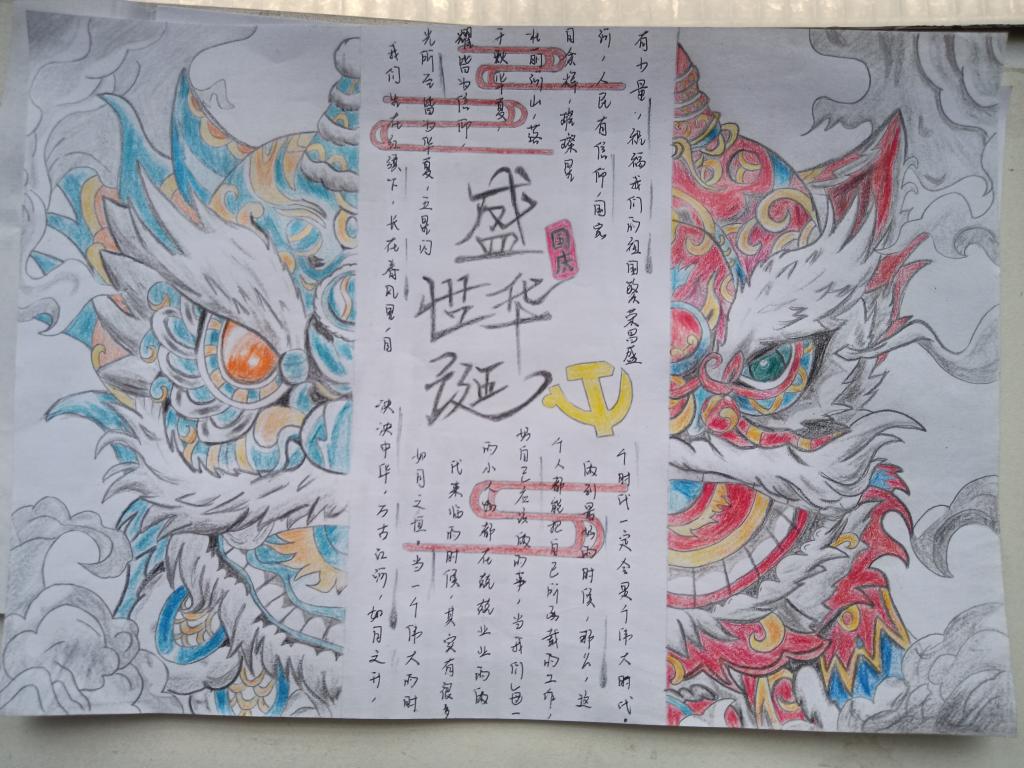 我们生在红旗下，长在春风里，目
光所至皆为华夏，五星闪
耀皆为信仰，
于数华夏，
壮丽河山，落
日余辉，璀璨星
河，人民有信仰，国家
有力量，祝福我们的祖国繁荣昌盛
盛
世华
诞
国庆
泱泱中华，万古江河，如日之升，
如月之恒。当一个伟大的时
代来临的时候，其实有很多
的小人物都在兢兢业业的做
好自己应该做的事，当我们每一
个人都能把自己所承载的工作，
做到最好的时候，那么，这
个时代一定会是个伟大时代。